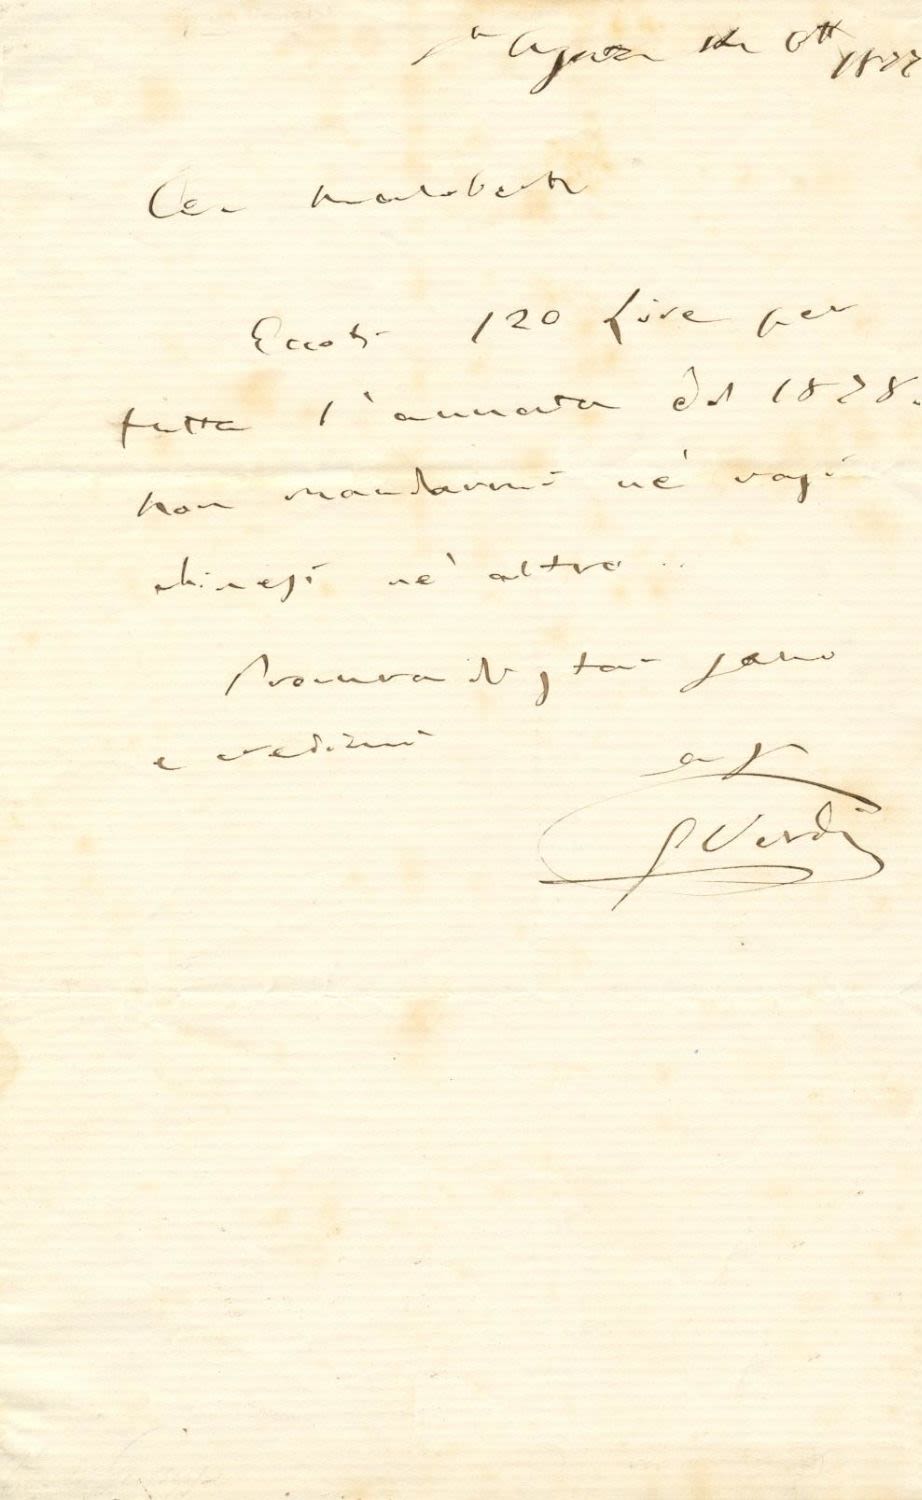 Sn Agata 14 Ott 1877
Car Maloberti
Eccoti 120 Lire per
tutta l'annata del 1878.
Non mandarmi nè vasi
chinesi nè altro..
Procura di star sano
e credimi
aff
GVerdi